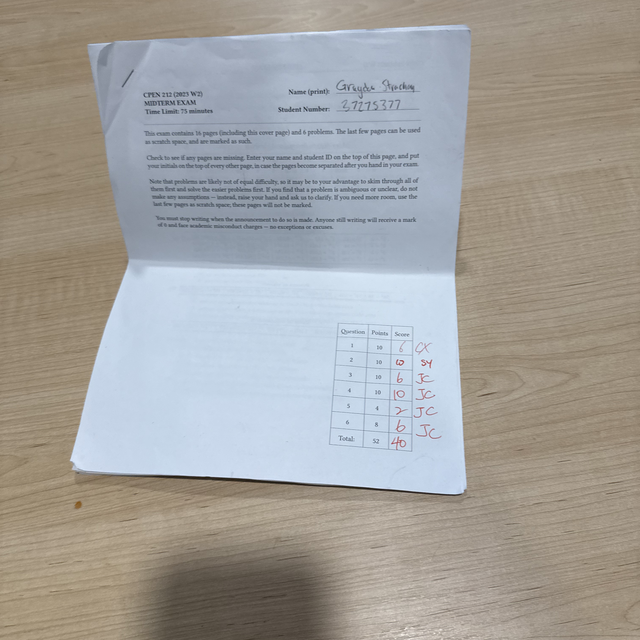 CPEN 212 (2023 W2)
MIDTERM EXAM
Time Limit: 75 minutes
Name (print):
Student Number: 37275377
This exam contains 16 pages (including this cover page) and 6 problems. The last few pages can be used
as scratch space, and are marked as such.
Check to see if any pages are missing. Enter your name and student ID on the top of this page, and put
your initials on the top of every other page, in case the pages become separated after you hand in your exam.
Note that problems are likely not of equal difficulty, so it may be to your advantage to skim through all of
them first and solve the easier problems first. If you find that a problem is ambiguous or unclear, do not
make any assumptions — instead, raise your hand and ask us to clarify. If you need more room, use the
last few pages as scratch space; these pages will not be marked.
You must stop writing when the announcement to do so is made. Anyone still writing will receive a mark
of 0 and face academic misconduct charges — no exceptions or excuses.
Question Points Score
1 10 6 CX
2 10 10 SY
3 10 6 JC
4 10 10 JC
5 4 2 JC
6 8 6 JC
Total: 52 40